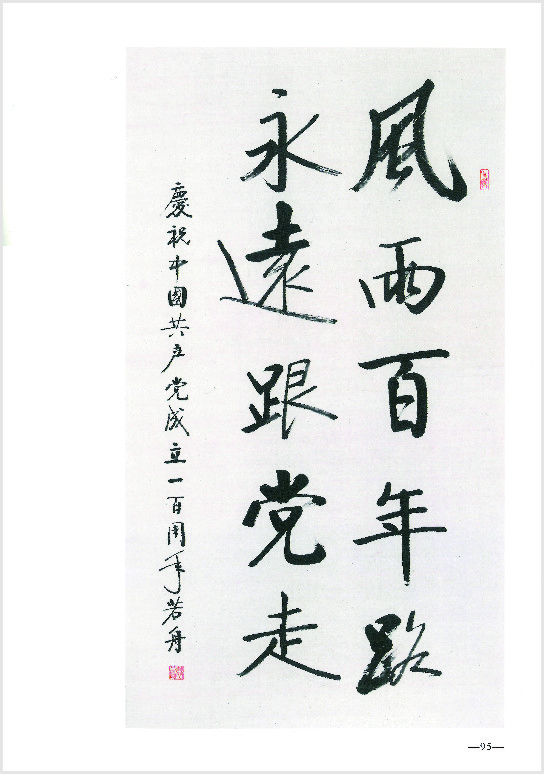 風雨百年路
永遠跟党走
慶祝中國共产党成立一百周年若舟
—95—